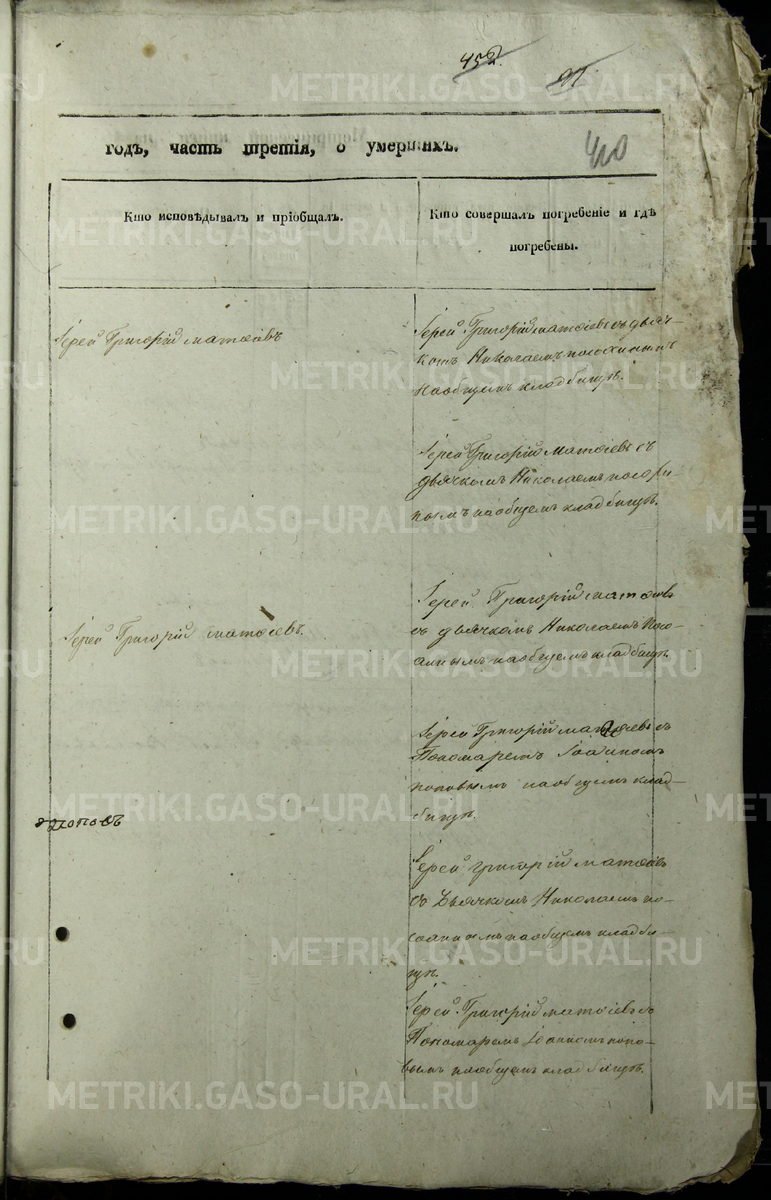 452.
400
годъ, часть третія, о умершихъ.
Кто исповѣдывалъ и пріобщалъ.
Кто совершалъ погребеніе и гдѣ
погребены.
Іерей Григорій Матѳіевъ
Іерей Григорій Матѳіевъ съ дьяч-
комъ Николаемъ
на общемъ кладбищѣ.
Іерей Григорій Матѳіевъ съ
дьячкомъ Николаемъ
на общемъ кладбищѣ.
Іерей Григорій Матѳіевъ.
Іерей Григорій Матѳіевъ
съ дьячкомъ Николаемъ
на общемъ кладбищѣ.
Іерей Григорій Матѳіевъ съ
Пономаремъ Іоанномъ
Поповымъ на общемъ клад-
бищѣ.
Поповъ
Іерей Григорій Матѳіевъ
съ Дьячкомъ Николаемъ
на общемъ кладби-
щѣ.
Іерей Григорій Матѳіевъ съ
Пономаремъ Іоанномъ Попо-
вымъ на общемъ кладбищѣ.
METRIKI.GASO-URAL.RU